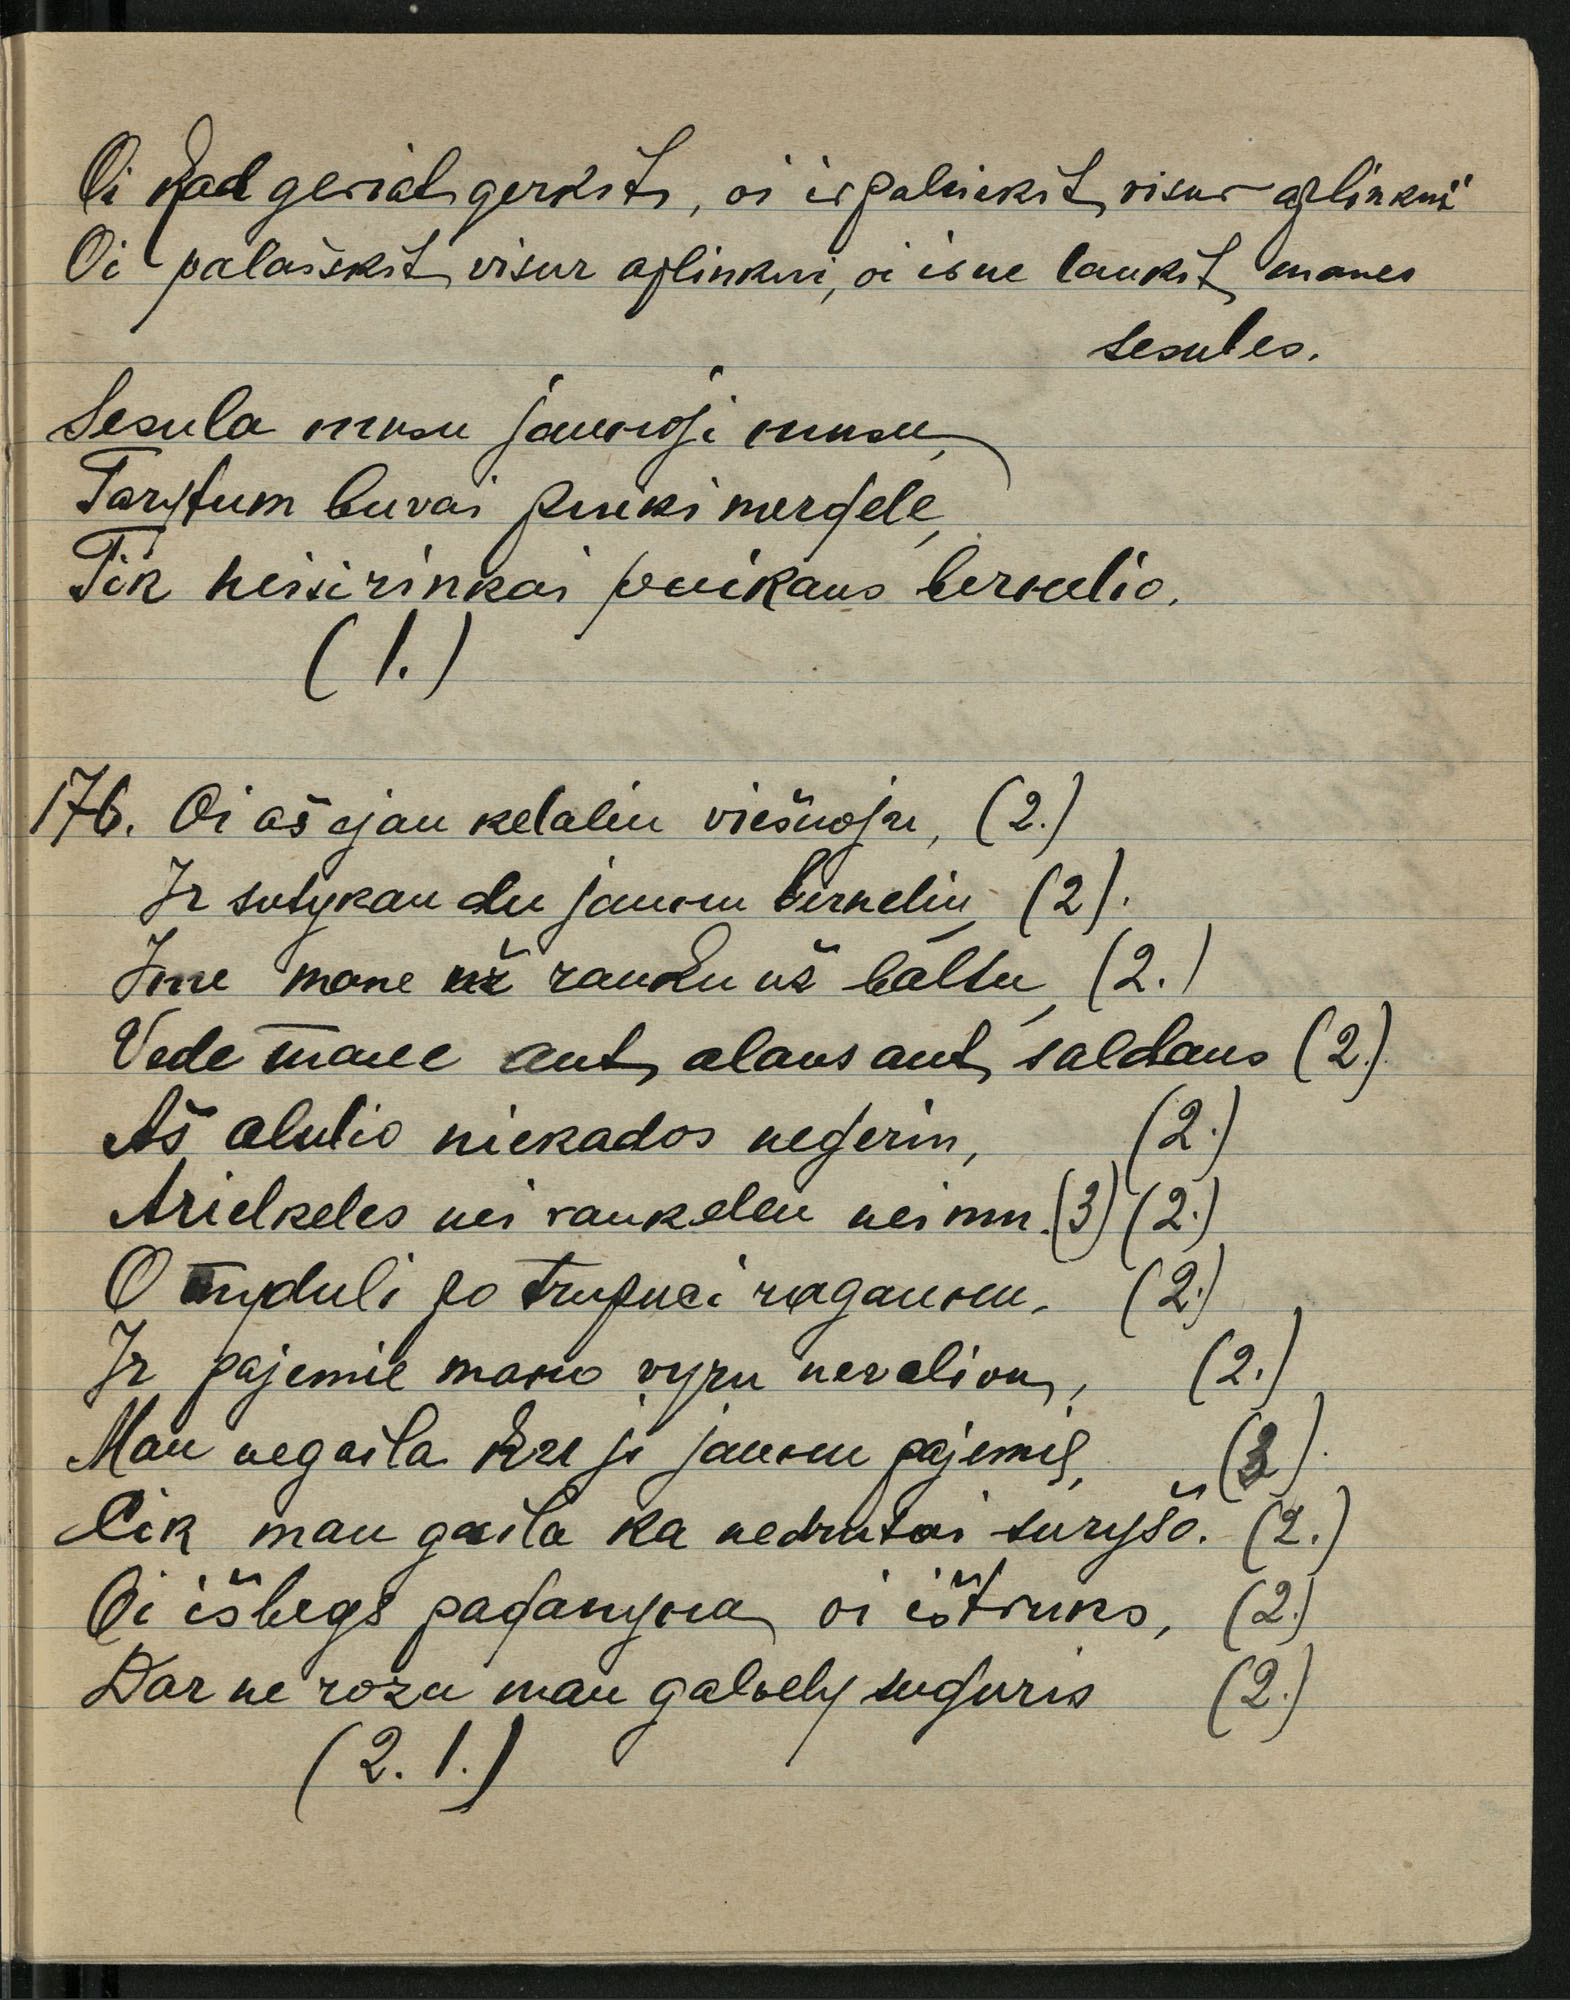 Oi kad geriat gerkit, oi ir palaistkit visur aplinkui
Oi palaisskit visur aplinkui, oi ir ne laukit manes
sesules.
Sesula musu jaunoji musu,
Tarytum buvai puiki mergele,
Tik neisirinkai puikaus bernelio.
(1.)
176. Oi aš ėjau kelaliu viešnoju, (2.)
Ir sutykau du jaunu berneliu, (2).
Jme mane už ranku už baltu, (2.)
Vede mane ant alaus ant saldaus (2.)
Aš alutio niekados negerin, (2.)
Arielkeles nei rankelen neimu. (3) (2.)
O myduli po trupuci ragaunu, (2.)
Ir pajemie mano vyru nevalion, (2.)
Man negaila kre ji jaunu pajemie, (2).
Cik man gaila ka nedrutai suryšo. (2.)
Oi išbegs paganyna oi ištruks, (2.)
Dar ne rozu man galvely suguris (2.)
(2. 1.)